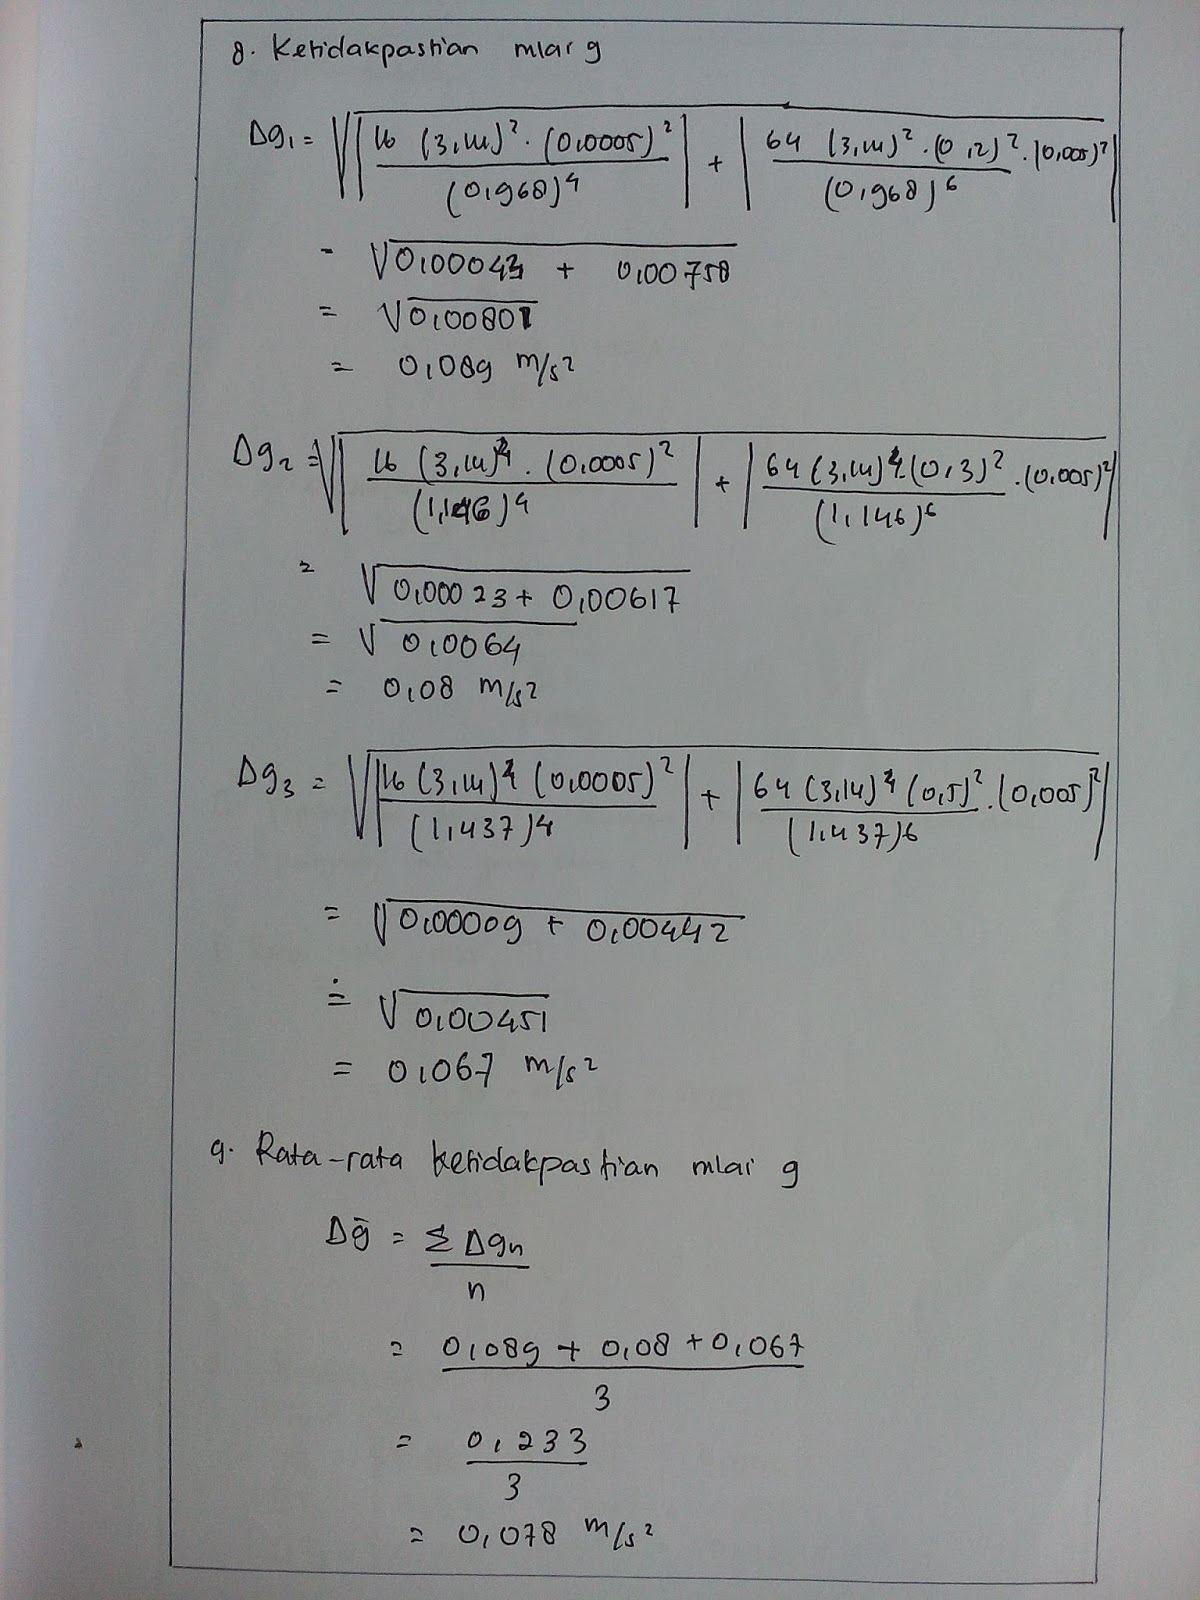 8. Ketidakpastian nilai g
Δg₁ = √|16 (3,14)² . (0,0005)² / (0,968)⁴| + |64 (3,14)² . (0,2)² . (0,005)² / (0,968)⁶|
= √0,00043 + 0,00758
= √0,00801
= 0,089 m/s²
Δg₂ = √|16 (3,14)⁴ . (0,0005)² / (1,146)⁴| + |64 (3,14)⁴ . (0,3)² . (0,005)² / (1,146)⁶|
= √0,00023 + 0,00617
= √0,0064
= 0,08 m/s²
Δg₃ = √|16 (3,14)⁴ (0,0005)² / (1,437)⁴| + |64 (3,14)⁴ (0,5)² . (0,005)² / (1,437)⁶|
= √0,00009 + 0,00442
= √0,00451
= 0,067 m/s²
9. Rata-rata ketidakpastian nilai g
Δḡ = Σ Δgₙ / n
= 0,089 + 0,08 + 0,067 / 3
= 0,233 / 3
= 0,078 m/s²